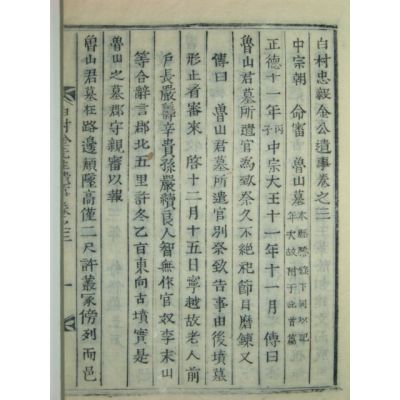 白村忠毅金公遺事卷之三
中宗朝 命審 魯山墓
正德十一年丙子 中宗大王十一年十一月 傳曰
魯山君墓所遣官爲致祭久不絶祀節目磨鍊又
傳曰 魯山君墓所遣官別祭致告事由後墳墓
形止看審來 啓十二月十五日寧越故老人前
戶長嚴壽辛貴孫嚴續良人智無作官奴李末山
等合辭言郡北五里許冬乙旨東向古墳實是
魯山之墓郡守親審以報
魯山君墓在路邊頹墜高僅二尺許叢冢傍列而邑
一